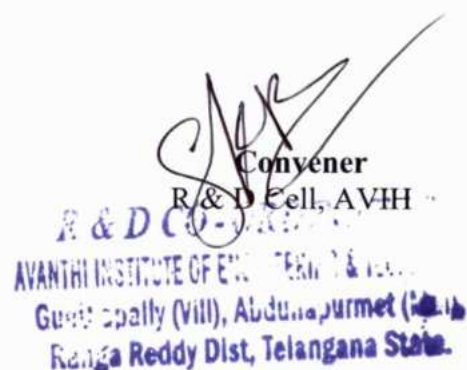 Convener
R & D Cell, AVIH
R & D CO-
AVANTHI INSTITUTE OF & 
(Vill), Abdullapurmet
Ranga Reddy Dist, Telangana State.